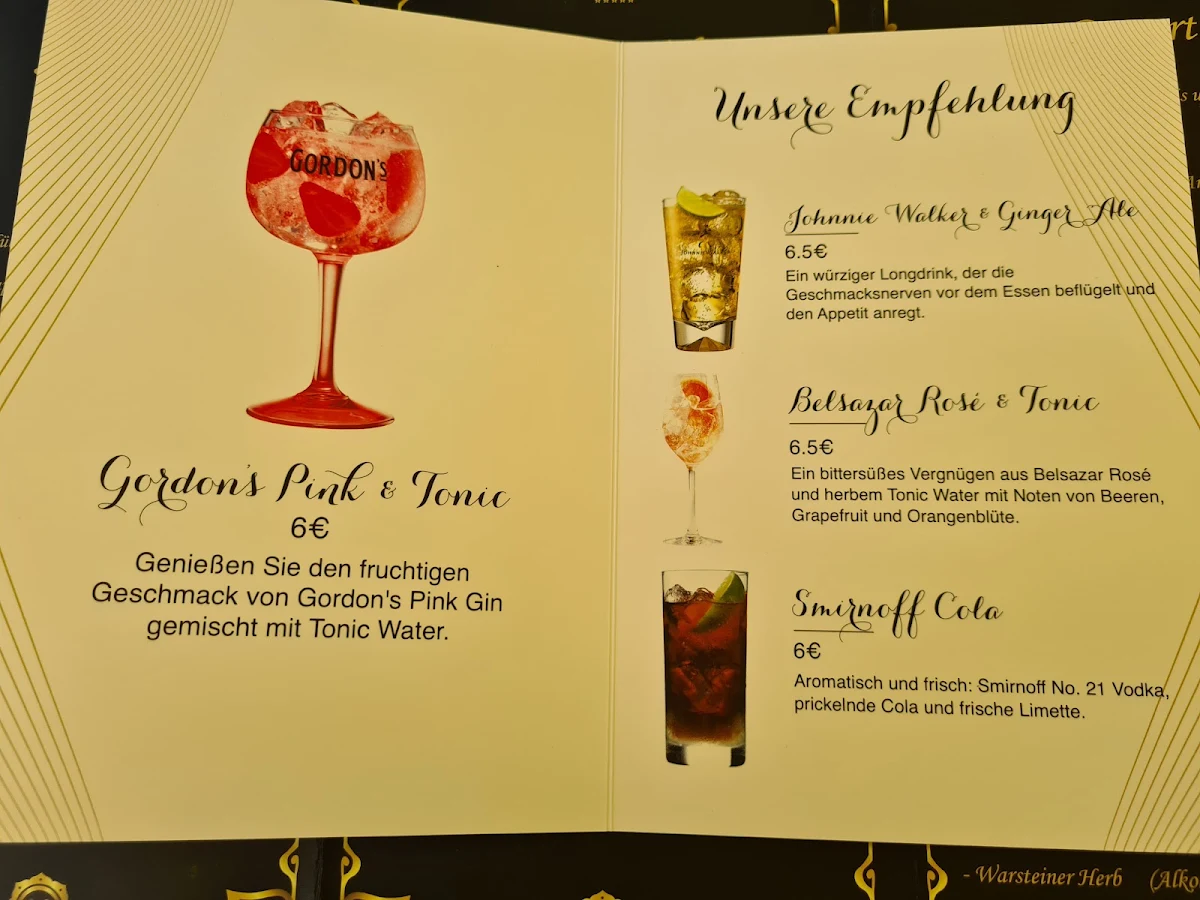 GORDON'S
Gordon's Pink & Tonic
6€
Genießen Sie den fruchtigen
Geschmack von Gordon's Pink Gin
gemischt mit Tonic Water.
Unsere Empfehlung
Johnnie Walker & Ginger Ale
6.5€
Ein würziger Longdrink, der die
Geschmacksnerven vor dem Essen beflügelt und
den Appetit anregt.
Belsazar Rosé & Tonic
6.5€
Ein bittersüßes Vergnügen aus Belsazar Rosé
und herbem Tonic Water mit Noten von Beeren,
Grapefruit und Orangenblüte.
Smirnoff Cola
6€
Aromatisch und frisch: Smirnoff No. 21 Vodka,
prickelnde Cola und frische Limette.
- Warsteiner Herb (Alko